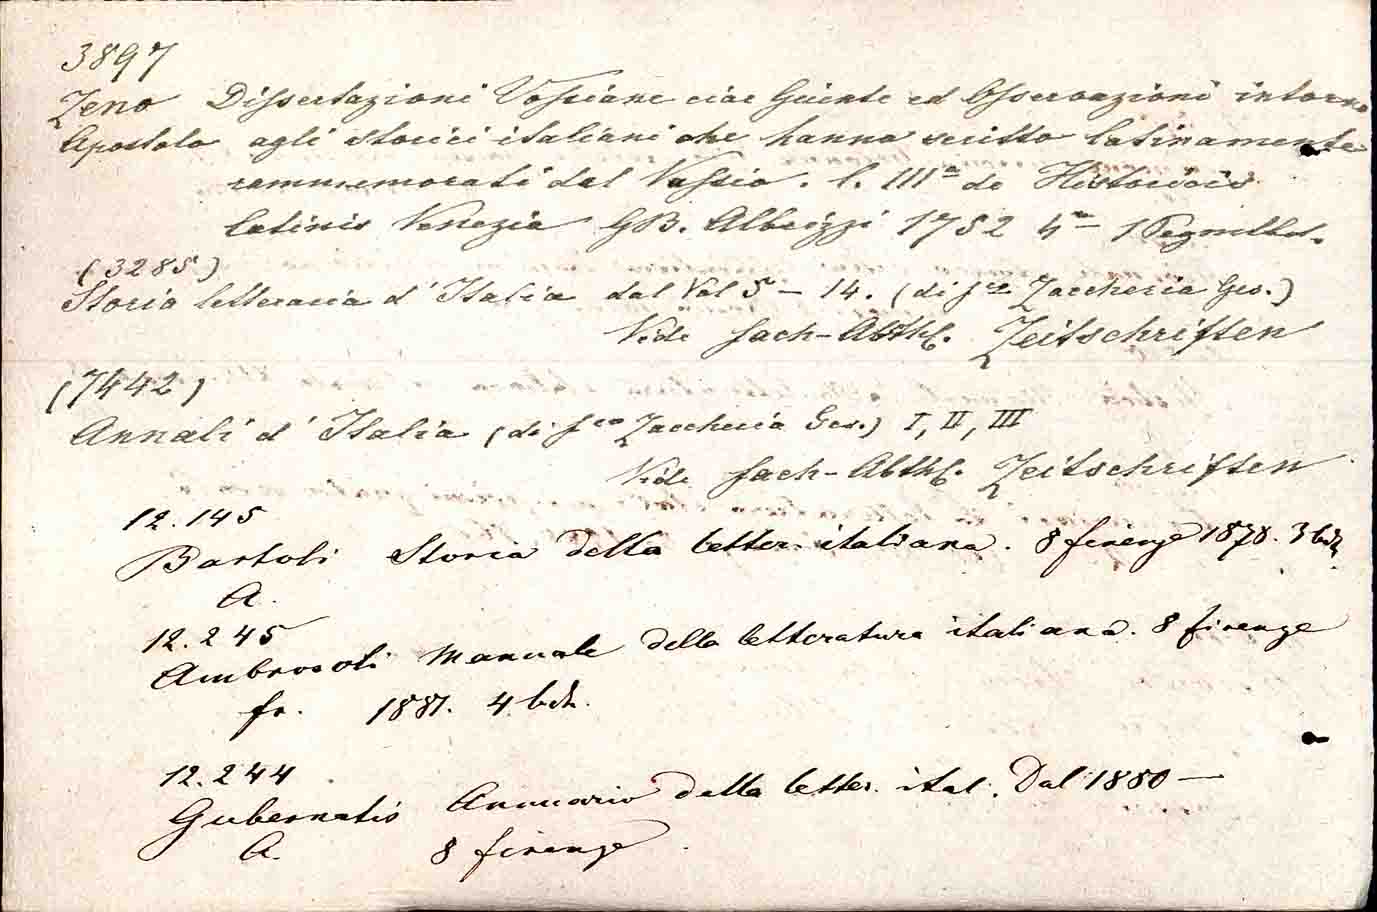 3897
Zeno Dissertazioni Vossiane cioe Giunte ed Osservazioni intorno
Apostolo agli storici italiani che hanno scritto latinamente
rammemorati dal Vossio. l. III de Historicis
latinis Venezia GB. Albrizzi 1752 4
(3285)
Storia letteraria d'Italia dal Vol 5 – 14. (di fco Zaccheria Ges.)
Vide fach-Abthl. Zeitschriften
(7442)
Annali d'Italia (di fco Zaccheria Ges.) I, II, III
Vide fach-Abthl. Zeitschriften
12.145
Bartoli Storia della letter. italiana. 8 firenze 1878. 3 bde
A.
12.245
Ambrosoli Manuale della letteratura italiana. 8 firenze
fr. 1881. 4 bde.
12.244
Gubernatis Annuario della letter. ital. Dal 1880 —
A. 8 firenze.